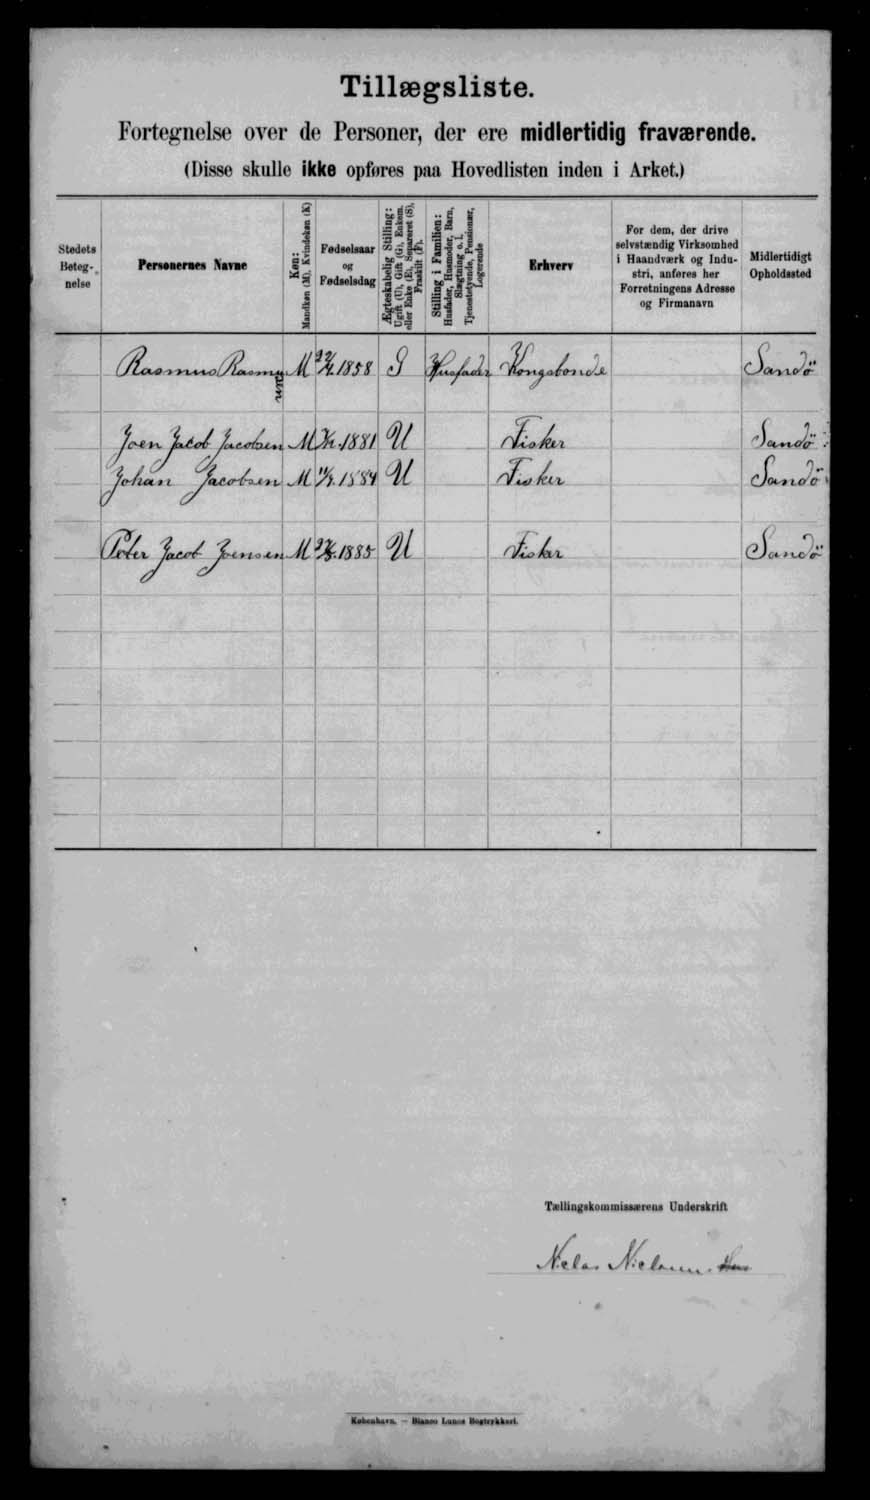 Tillægsliste.
Fortegnelse over de Personer, der ere midlertidig fraværende.
(Disse skulle ikke opføres paa Hovedlisten inden i Arket.)
Stedets Beteg-nelse
Personernes Navne
Køn: Mandkøn (M), Kvindekøn (K)
Fødselsaar og Fødselsdag
Ægteskabelig Stilling: Ugift (U), Gift (G), Enkem. eller Enke (E), Separeret (S), Fraskilt (F).
Stilling i Familien: Husfader, Husmoder, Barn, Slægtning o. l. Tjenestetyende, Pensionær, Logerende
Erhverv
For dem, der drive selvstændig Virksomhed i Haandværk og Indu-stri, anføres her Forretningens Adresse og Firmanavn
Midlertidigt Opholdssted
Rasmus Rasmussen M 1858 G Husfader Kongsbonde Sandö
Joen Jacob Jacobsen M 1881 U Fisker Sandö
Johan Jacobsen M 1884 U Fisker Sandö
Peter Jacob Joensen M 1885 U Fisker Sandö
Tællingskommissærens Underskrift
Niclas Nielsen
København. — Bianco Lunos Bogtrykkeri.